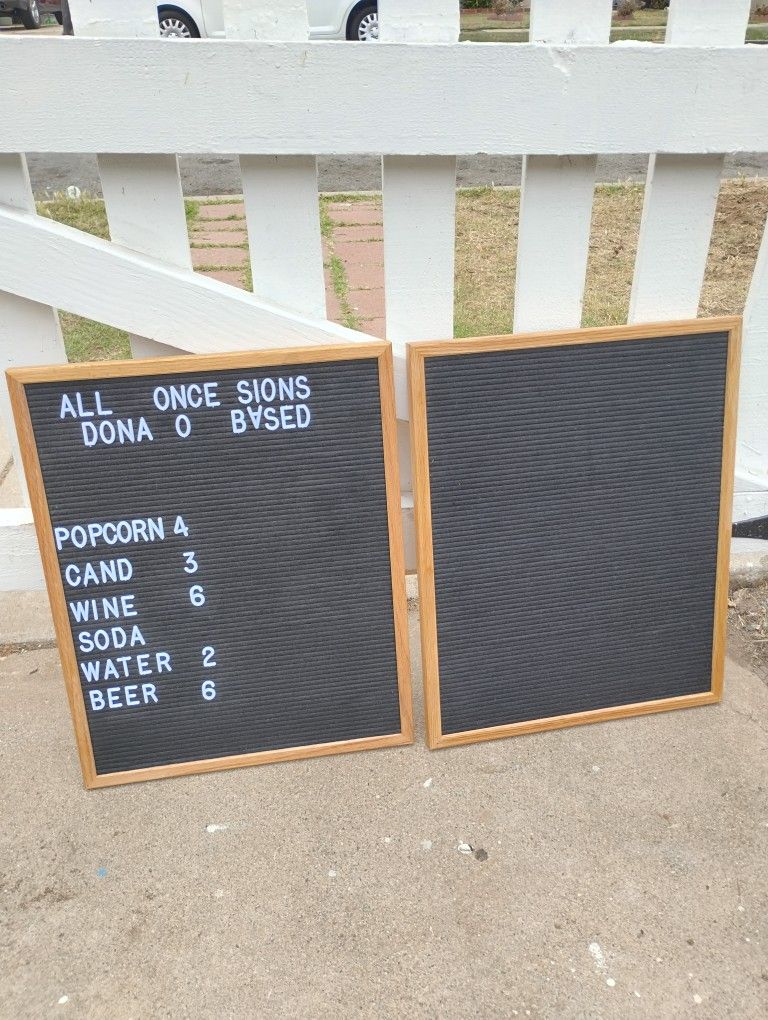 ALL ONCE SIONS
DONA O BASED
POPCORN 4
CAND 3
WINE 6
SODA
WATER 2
BEER 6